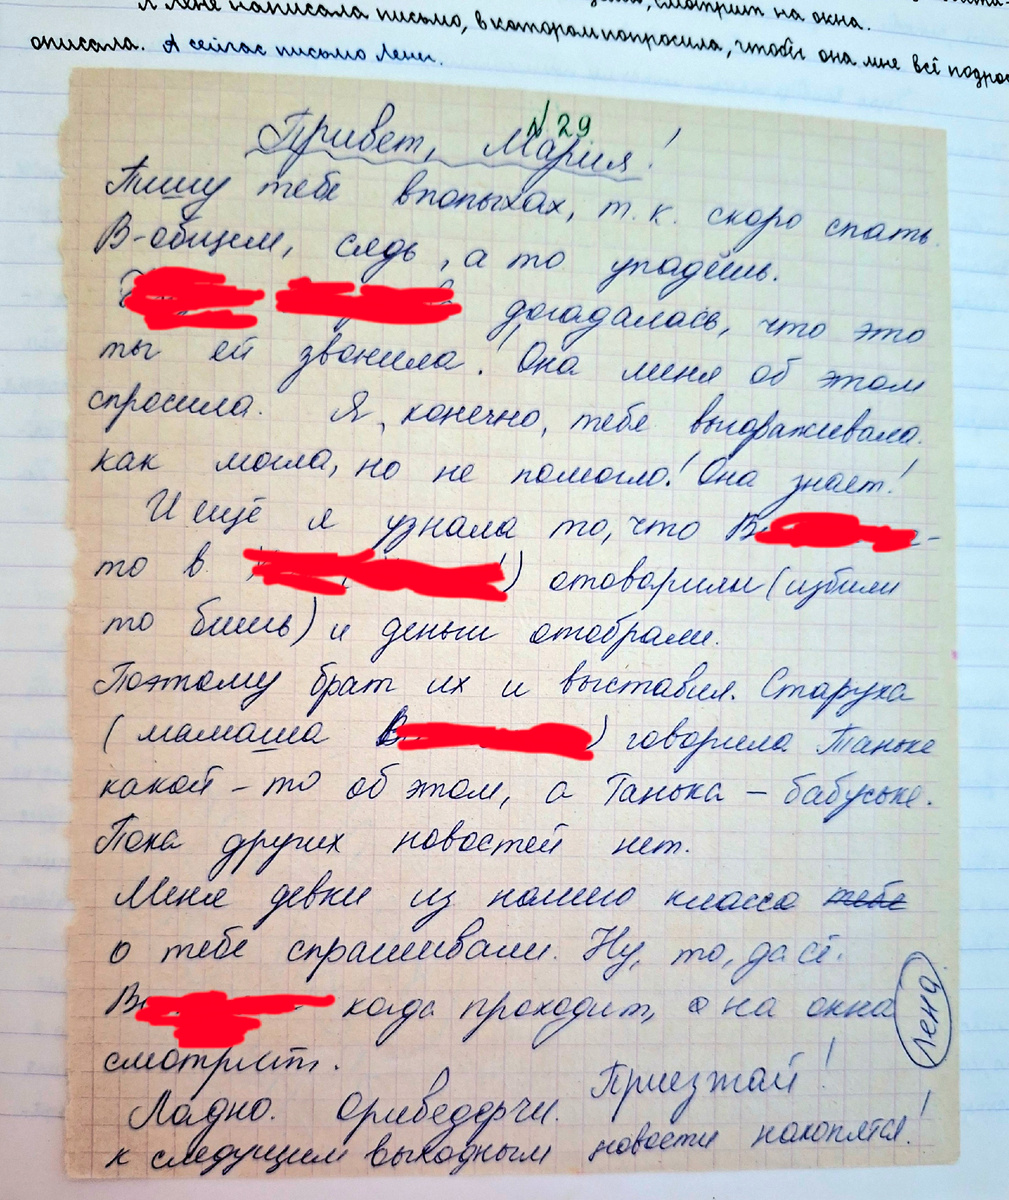 смотрит на окна.
Я Лене написала письмо, в котором попросила, чтобы она мне всё подроб
описала. А сейчас письмо Лены.
№ 29
Привет, Мария!
Пишу тебе впопыхах, т. к. скоро спать.
В-общем, сядь, а то упадёшь.
догадалась, что это
ты ей звонила! Она меня об этом
спросила. Я, конечно, тебе выгораживала
как могла, но не помогло! Она знает!
И ещё я узнала то, что В
то в ) отоварили (избили
то бишь) и деньги отобрали.
Поэтому брат их и выставил. Старуха
(мамаша В ) говорила Таньке
какой-то об этом, а Танька - бабуське.
Пока других новостей нет.
Меня девки из нашего класса тебе
о тебе спрашивали. Ну, то, да сё.
В когда проходит, а на окна
смотрит.
Лена
Ладно. Ориведерчи. Приезжай!
к следующим выходным новости накопятся!